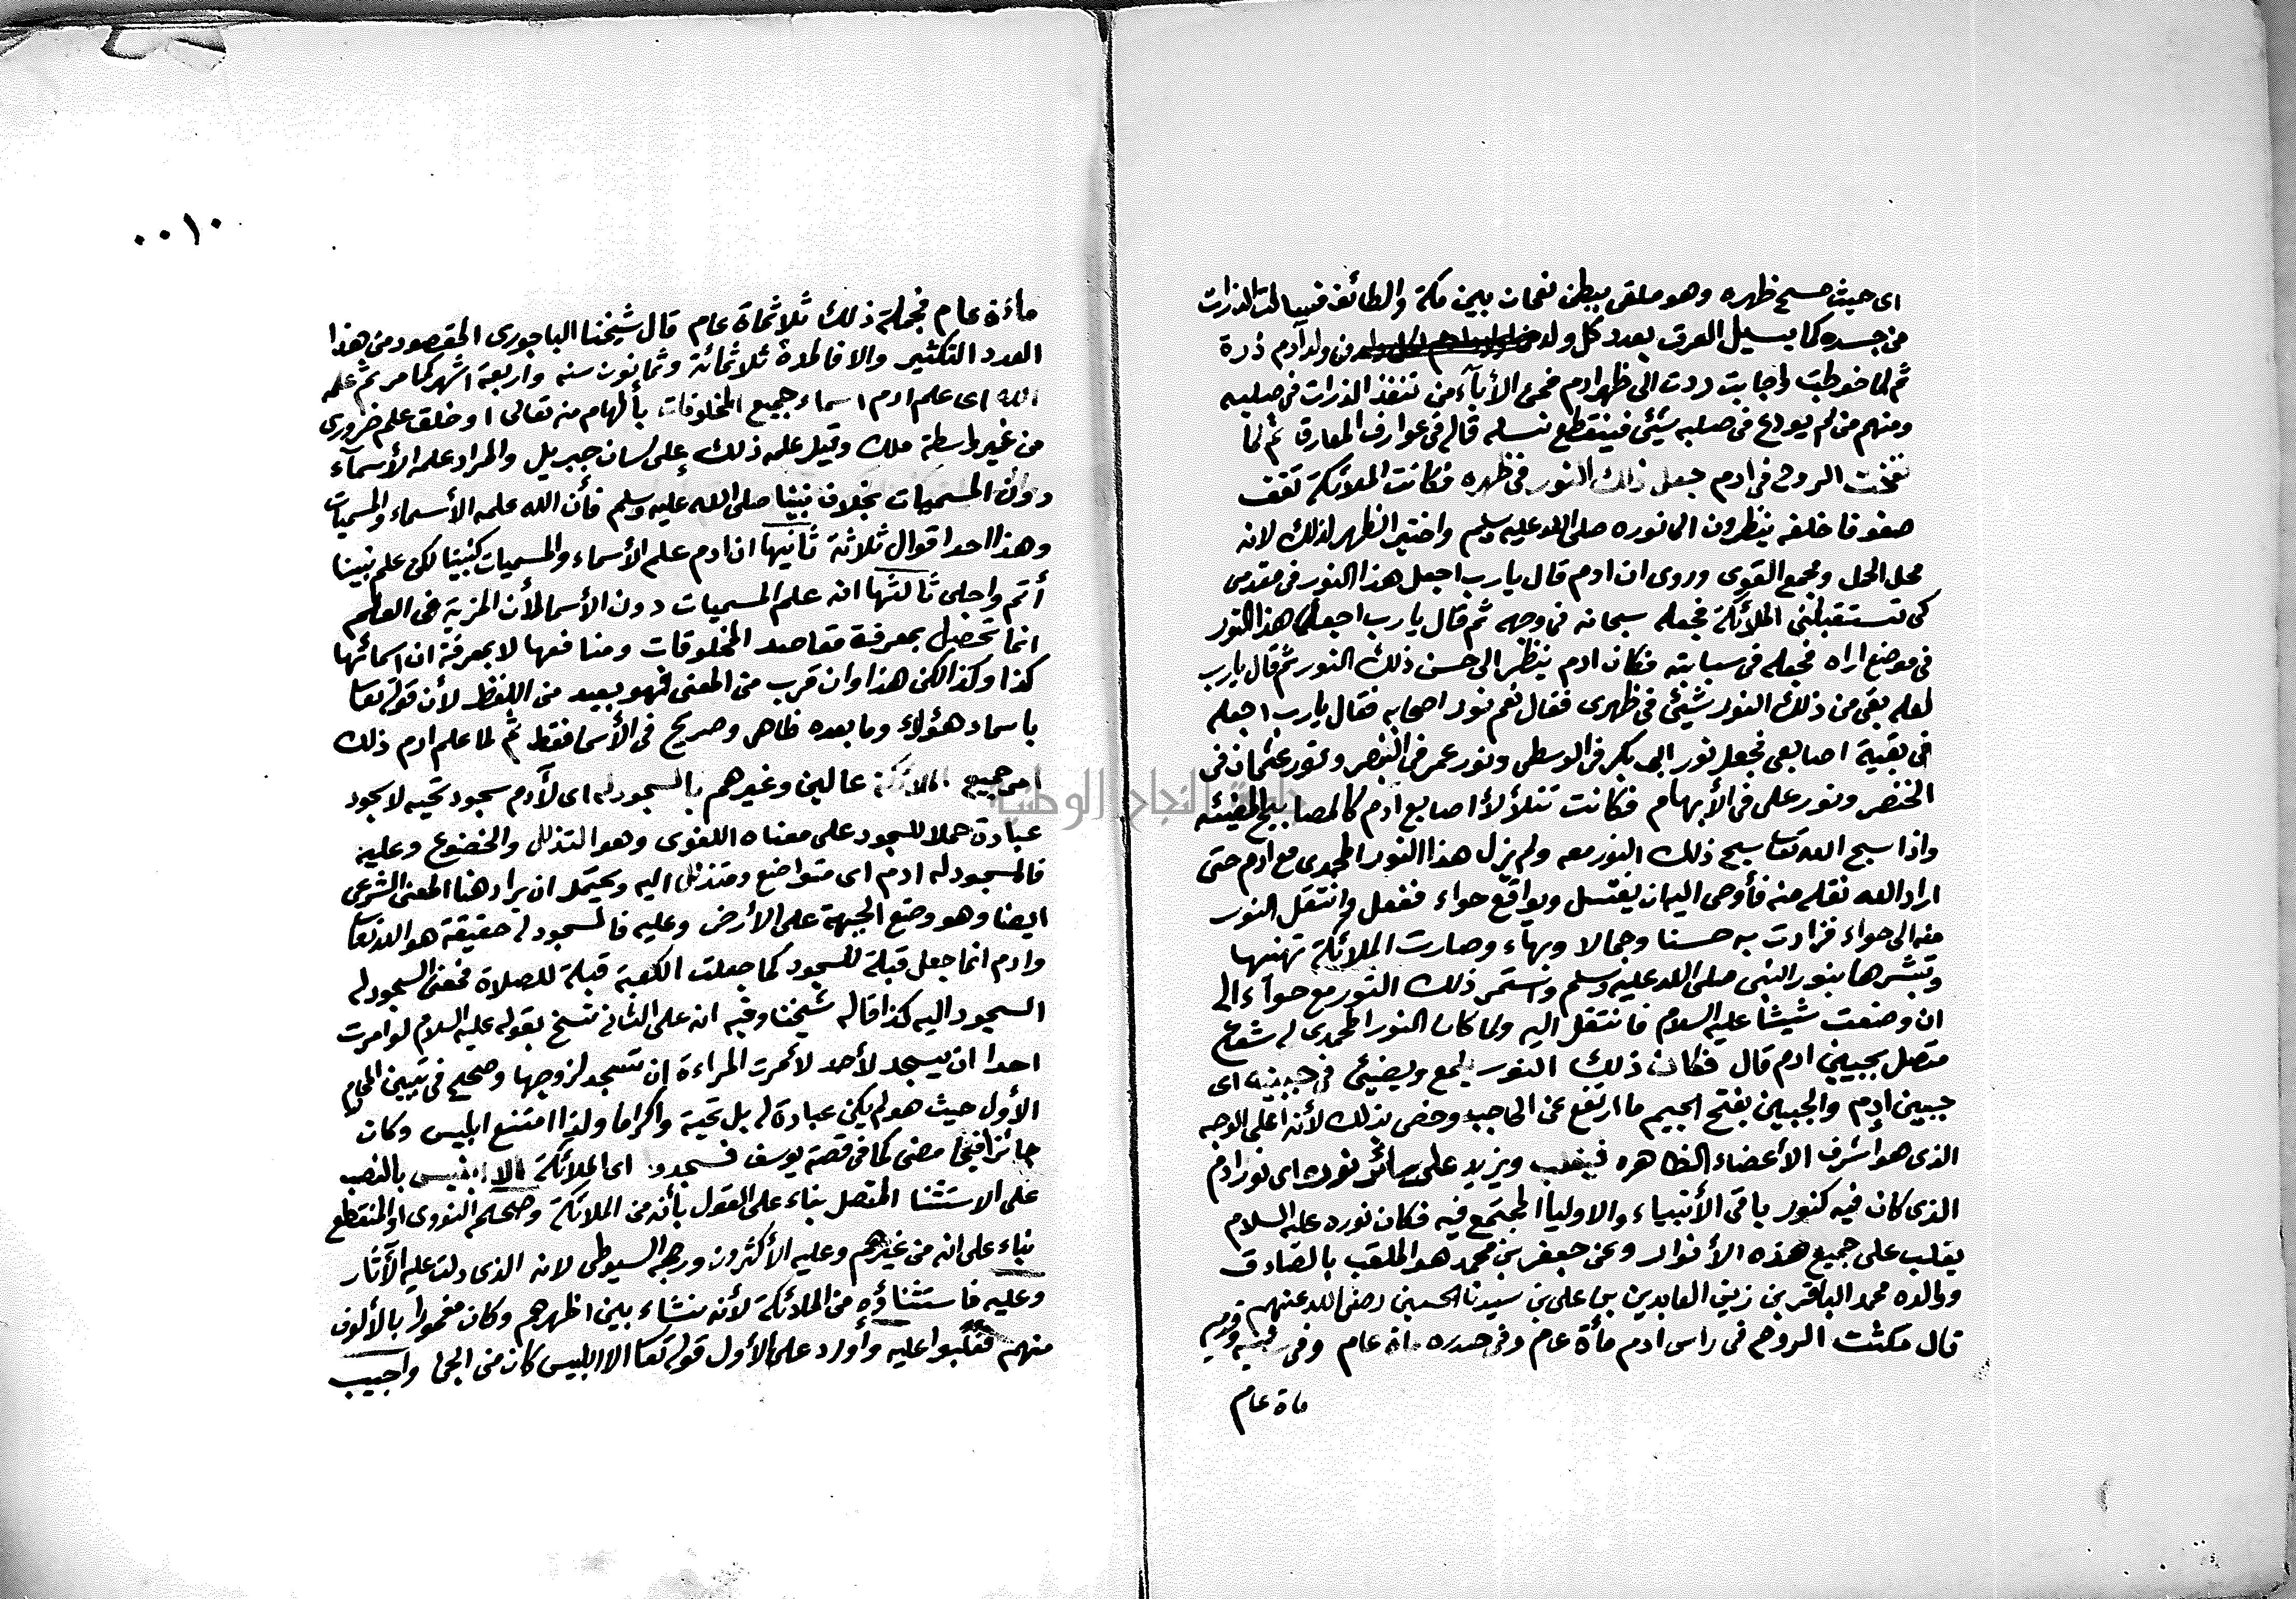 اى حيث مسح ظهره وهو ملقى ببطن نعمان بين مكة والطائف فسالت الذرات
من جسده كما يسيل العرق بعدد كل ولد من ولد آدم ذرة
ثم لما خوطبت واجابت ردت الى ظهر ادم فمن الأبآء من تنفذ الذرات فى صلبه
ومنهم من لم يودع فى صلبه شيئ فينقطع نسله قاله فى عوارف المعارف ثم لما
نفخت الروح فى ادم جعل ذلك النور فى ظهره فكانت الملائكة تقف
صفوفا خلفه ينظرون الى نوره صلى الله عليه وسلم واختير الظهر لذلك لانه
محل الحمل ومجمع القوى وروى ان ادم قال يا رب اجعل هذا النور فى مقدمى
كى تستقبلنى الملائكة فجعله سبحانه فى وجهه ثم قال يا رب اجعل هذا النور
فى موضع اراه فجعله فى سبابته فكان ادم ينظر الى حسن ذلك النور ثم قال يا رب
لعله بقى من ذلك النور شيئ فى ظهرى فقال نعم نور اصحابه فقال يا رب اجعله
فى بقية اصابعى فجعل نور ابى بكر فى الوسطى ونور عمر فى البنصر ونور عثمان فى
الخنصر ونور على فى الأبهام فكانت تتلألأ اصابع ادم كالمصابيح المضيئه
واذا سبح الله تعا سبح ذلك النور معه ولم يزل هذا النور المحمدى مع ادم حتى
اراد الله نقله منه فأوحى اليه ان يغتسل ويواقع حواء ففعل وانتقل النور
منه الى حواء فزادت به حسنا وجمالا وبهآء وصارت الملائكة تهنيها
وتبشرها بنور النبى صلى الله عليه وسلم واستمر ذلك النور مع حوآء الى
ان وضعت شيثا عليه السلام فانتقل اليه ولما كان النور المحمدى له شعاع
متصل بجبين ادم قال فكان ذلك النور يلمع ويضيئ فى جبينه اى
جبين ادم والجبين بفتح الجيم ما ارتفع عن الحاجب وخص بذلك لأنه اعلى الوجه
الذى هو اشرف الأعضاء الظاهره فيغلب ويزيد على سائر نوره اى نور ادم
الذى كان فيه كنور باقى الأنبياء والاوليا المجتمع فيه فكان نوره عليه السلام
يغلب على جميع هذه الأنوار وعن جعفر بن محمد هو الملقب بالصادق
ووالده محمد الباقر بن زين العابدين بن على بن سيدنا الحسين رضى الله عنهم
قال مكثت الروح فى راس ادم مأة عام وفى صدره مأة عام وفى
ماة عام
٠٠١٠
مأة عام فجملة ذلك ثلاثماة عام قال شيخنا الباجورى المقصود من هذا
العدد التكثير والا فالمدة ثلاثمائة وثمانون سنه واربعة اشهر كما مر ثم علمه
الله اى علم ادم اسماء جميع المخلوقات بألهام منه تعالى او خلق علم ضرورى
من غير واسطة ملك وقيل علمه ذلك على لسان جبريل والمراد علمه الأسمآء
دون المسميات بخلاف نبينا صلى الله عليه وسلم فأن الله علمه الأسماء والمسميات
وهذا احد اقوال ثلاثة ثانيها ان ادم علم الأسماء والمسميات كنبينا لكن علم نبينا
أتم واجلى ثالثها انه علم المسميات دون الأسما لأن المزية فى العلم
انما تحصل بمعرفة مقاصد المخلوقات ومنافعها لا بمعرفة ان اسمائها
كذا وكذا لكن هذا وان قرب من المعنى فهو بعيد من اللفظ لأن قوله تعا
باسماء هؤلاء وما بعده ظاهر وصريح فى الأسما فقط ثم لما علم ادم ذلك
امر جميع الملائكة عالين وغيرهم بالسجود له اى لآدم سجود تحيه لا سجود
عبادة حملا للسجود على معناه اللغوى وهو التذلل والخضوع وعليه
فالمسجود له ادم اى متواضع ومتذلل اليه ويحتمل ان يراد هنا المعنى الشرعى
ايضا وهو وضع الجبهة على الأرض وعليه فالمسجود له حقيقة هو الله تعا
وادم انما جعل قبلة للسجود كما جعلت الكعبة قبلة للصلاة فمعنى السجود له
السجود اليه كذا قاله شيخنا وفيه ان على الثانى نسخ بقوله عليه السلام لو امرت
احدا ان يسجد لأحد لأمرت المراءة ان تسجد لزوجها وصحح فى تبيين المحارم
الأول حيث هو لم يكن عبادة له بل تحية واكراما ولذا امتنع ابليس وكان
جائزا فيما مضى كما فى قصة يوسف فسجدوا اى الملائكة الا ابليس بالنصب
على الاستثنا المتصل بناء على القول بأنه من الملائكة وصححه النووى او المنقطع
بناء على انه من غيرهم وعليه الأكثرون ورجحه السيوطى لانه الذى دلت عليه الأثار
وعليه فاستثناؤه من الملائكة لأنه نشاء بين اظهرهم وكان مغمورا بالألوف
منهم فغلبوا عليه وأورد على الأول قوله تعا الا ابليس كان من الجن واجيب